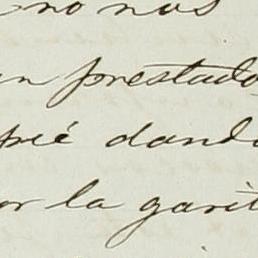 no nos
un prestado
pié dando
or la garit